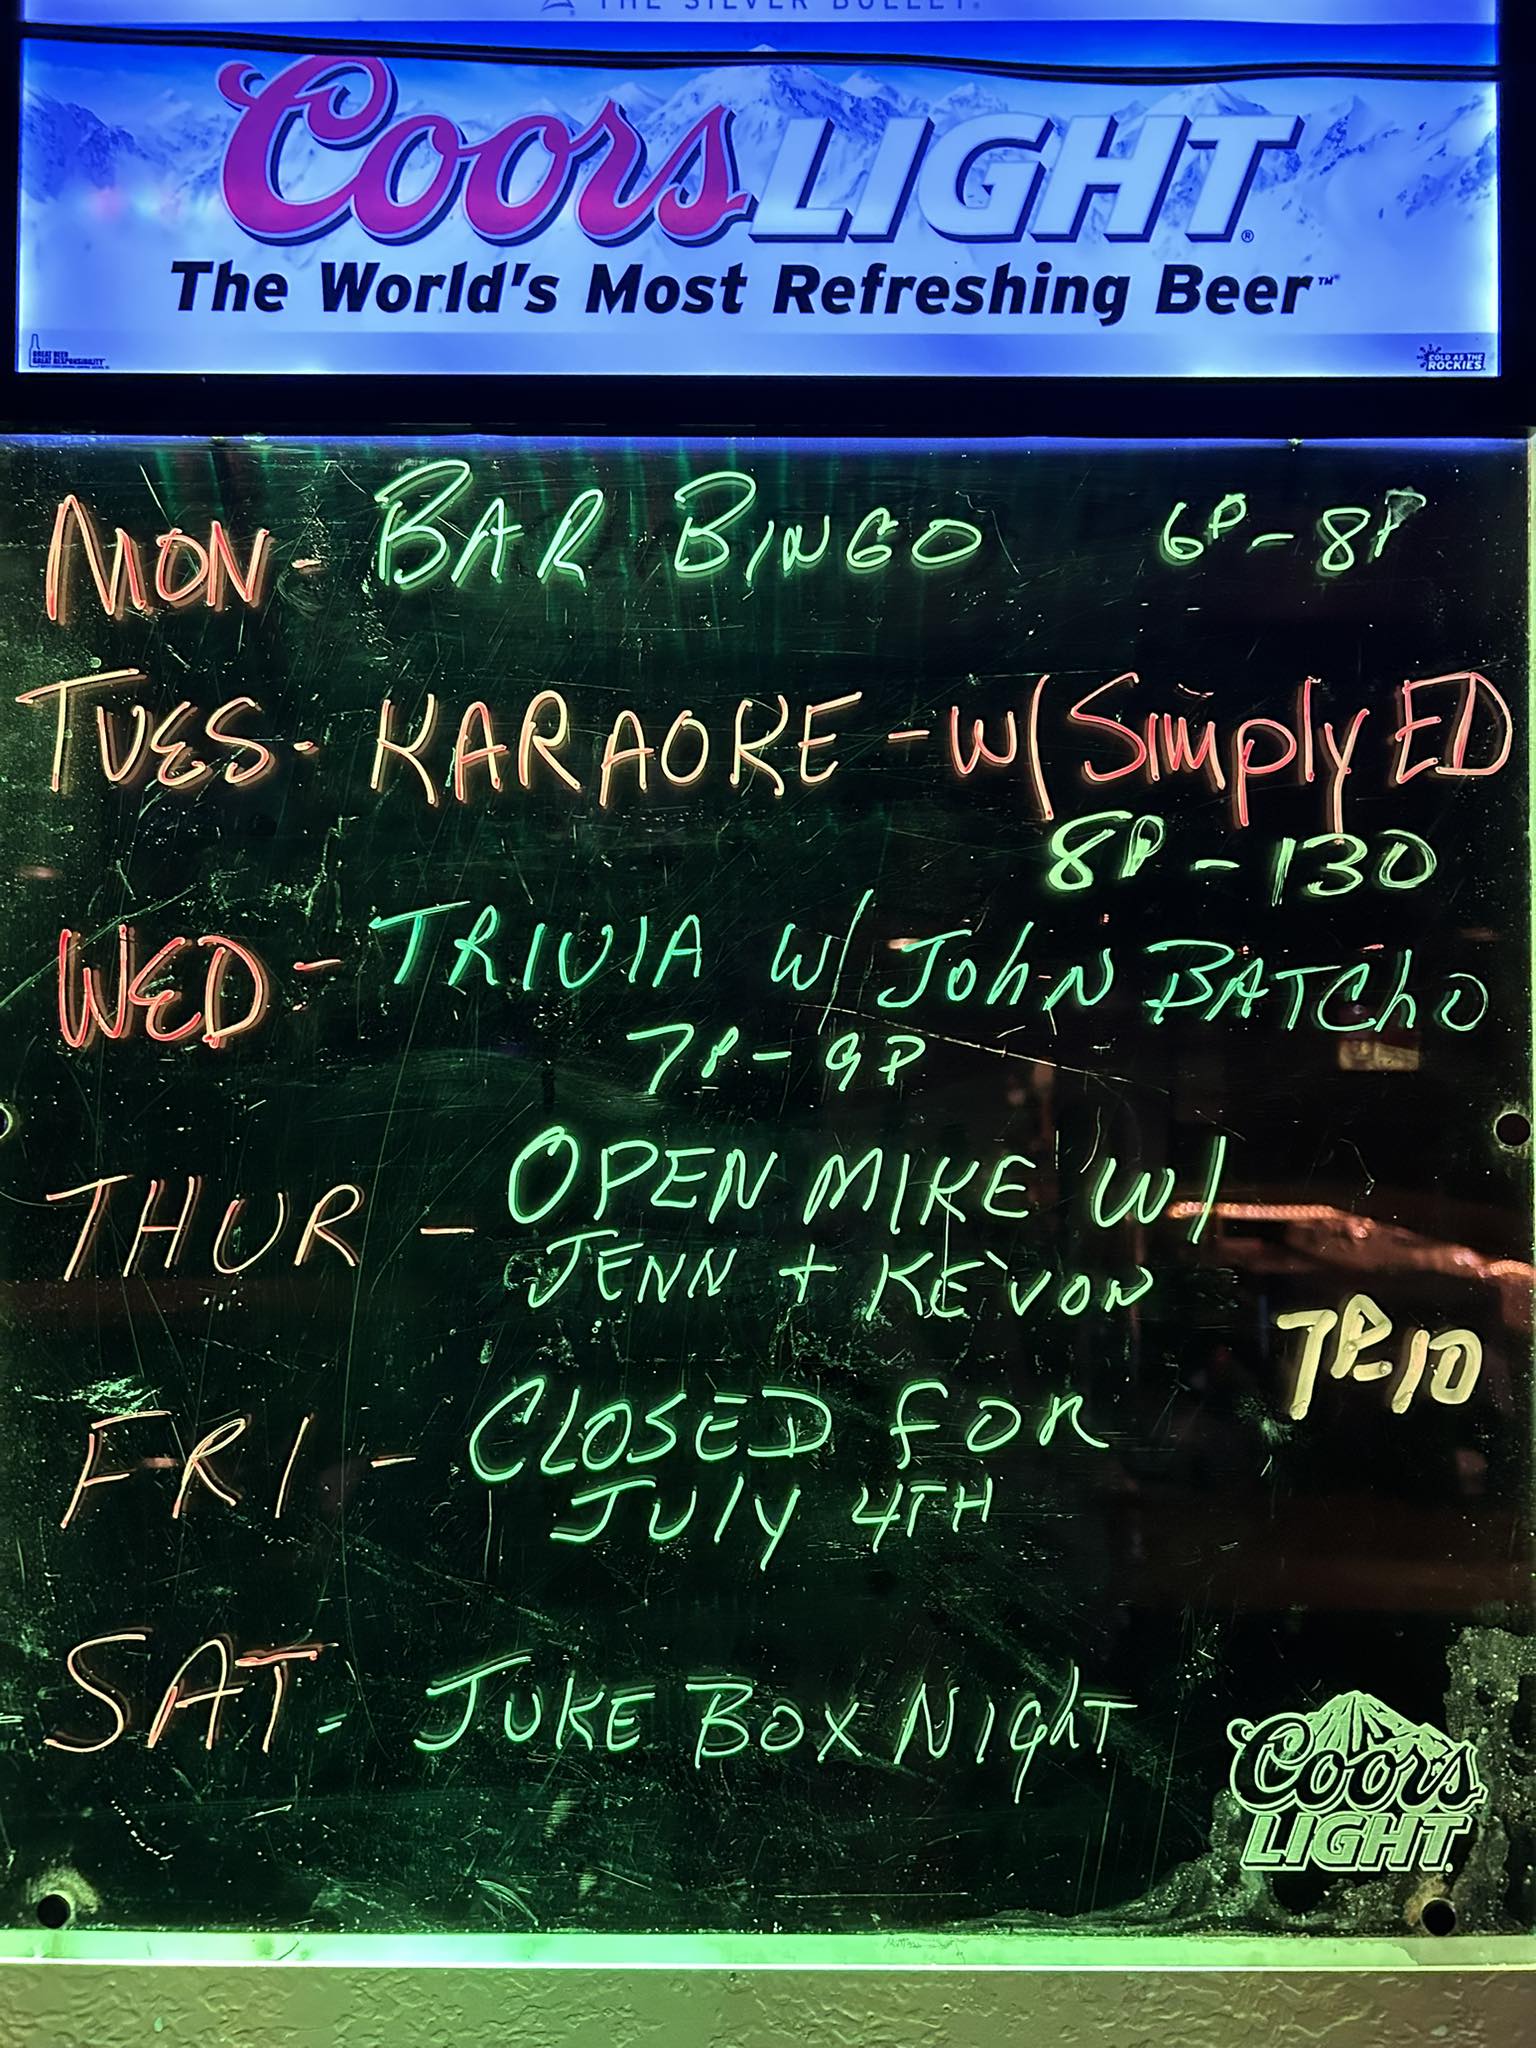 THE SILVER BULLET.
Coors LIGHT®
The World's Most Refreshing Beer™
GREAT BEER
GREAT RESPONSIBILITY
COLD AS THE
ROCKIES
MON - BAR BINGO 6P - 8P
TUES - KARAOKE - W/ Simply ED
8P - 130
WED - TRIVIA W/ JOhN BATChO
7P - 9P
THUR - OPEN MIKE W/
JENN + KE'VON
7P-10
FRI - CLOSED FOR
JUly 4TH
SAT - JUKE BOX NIghT
Coors
LIGHT